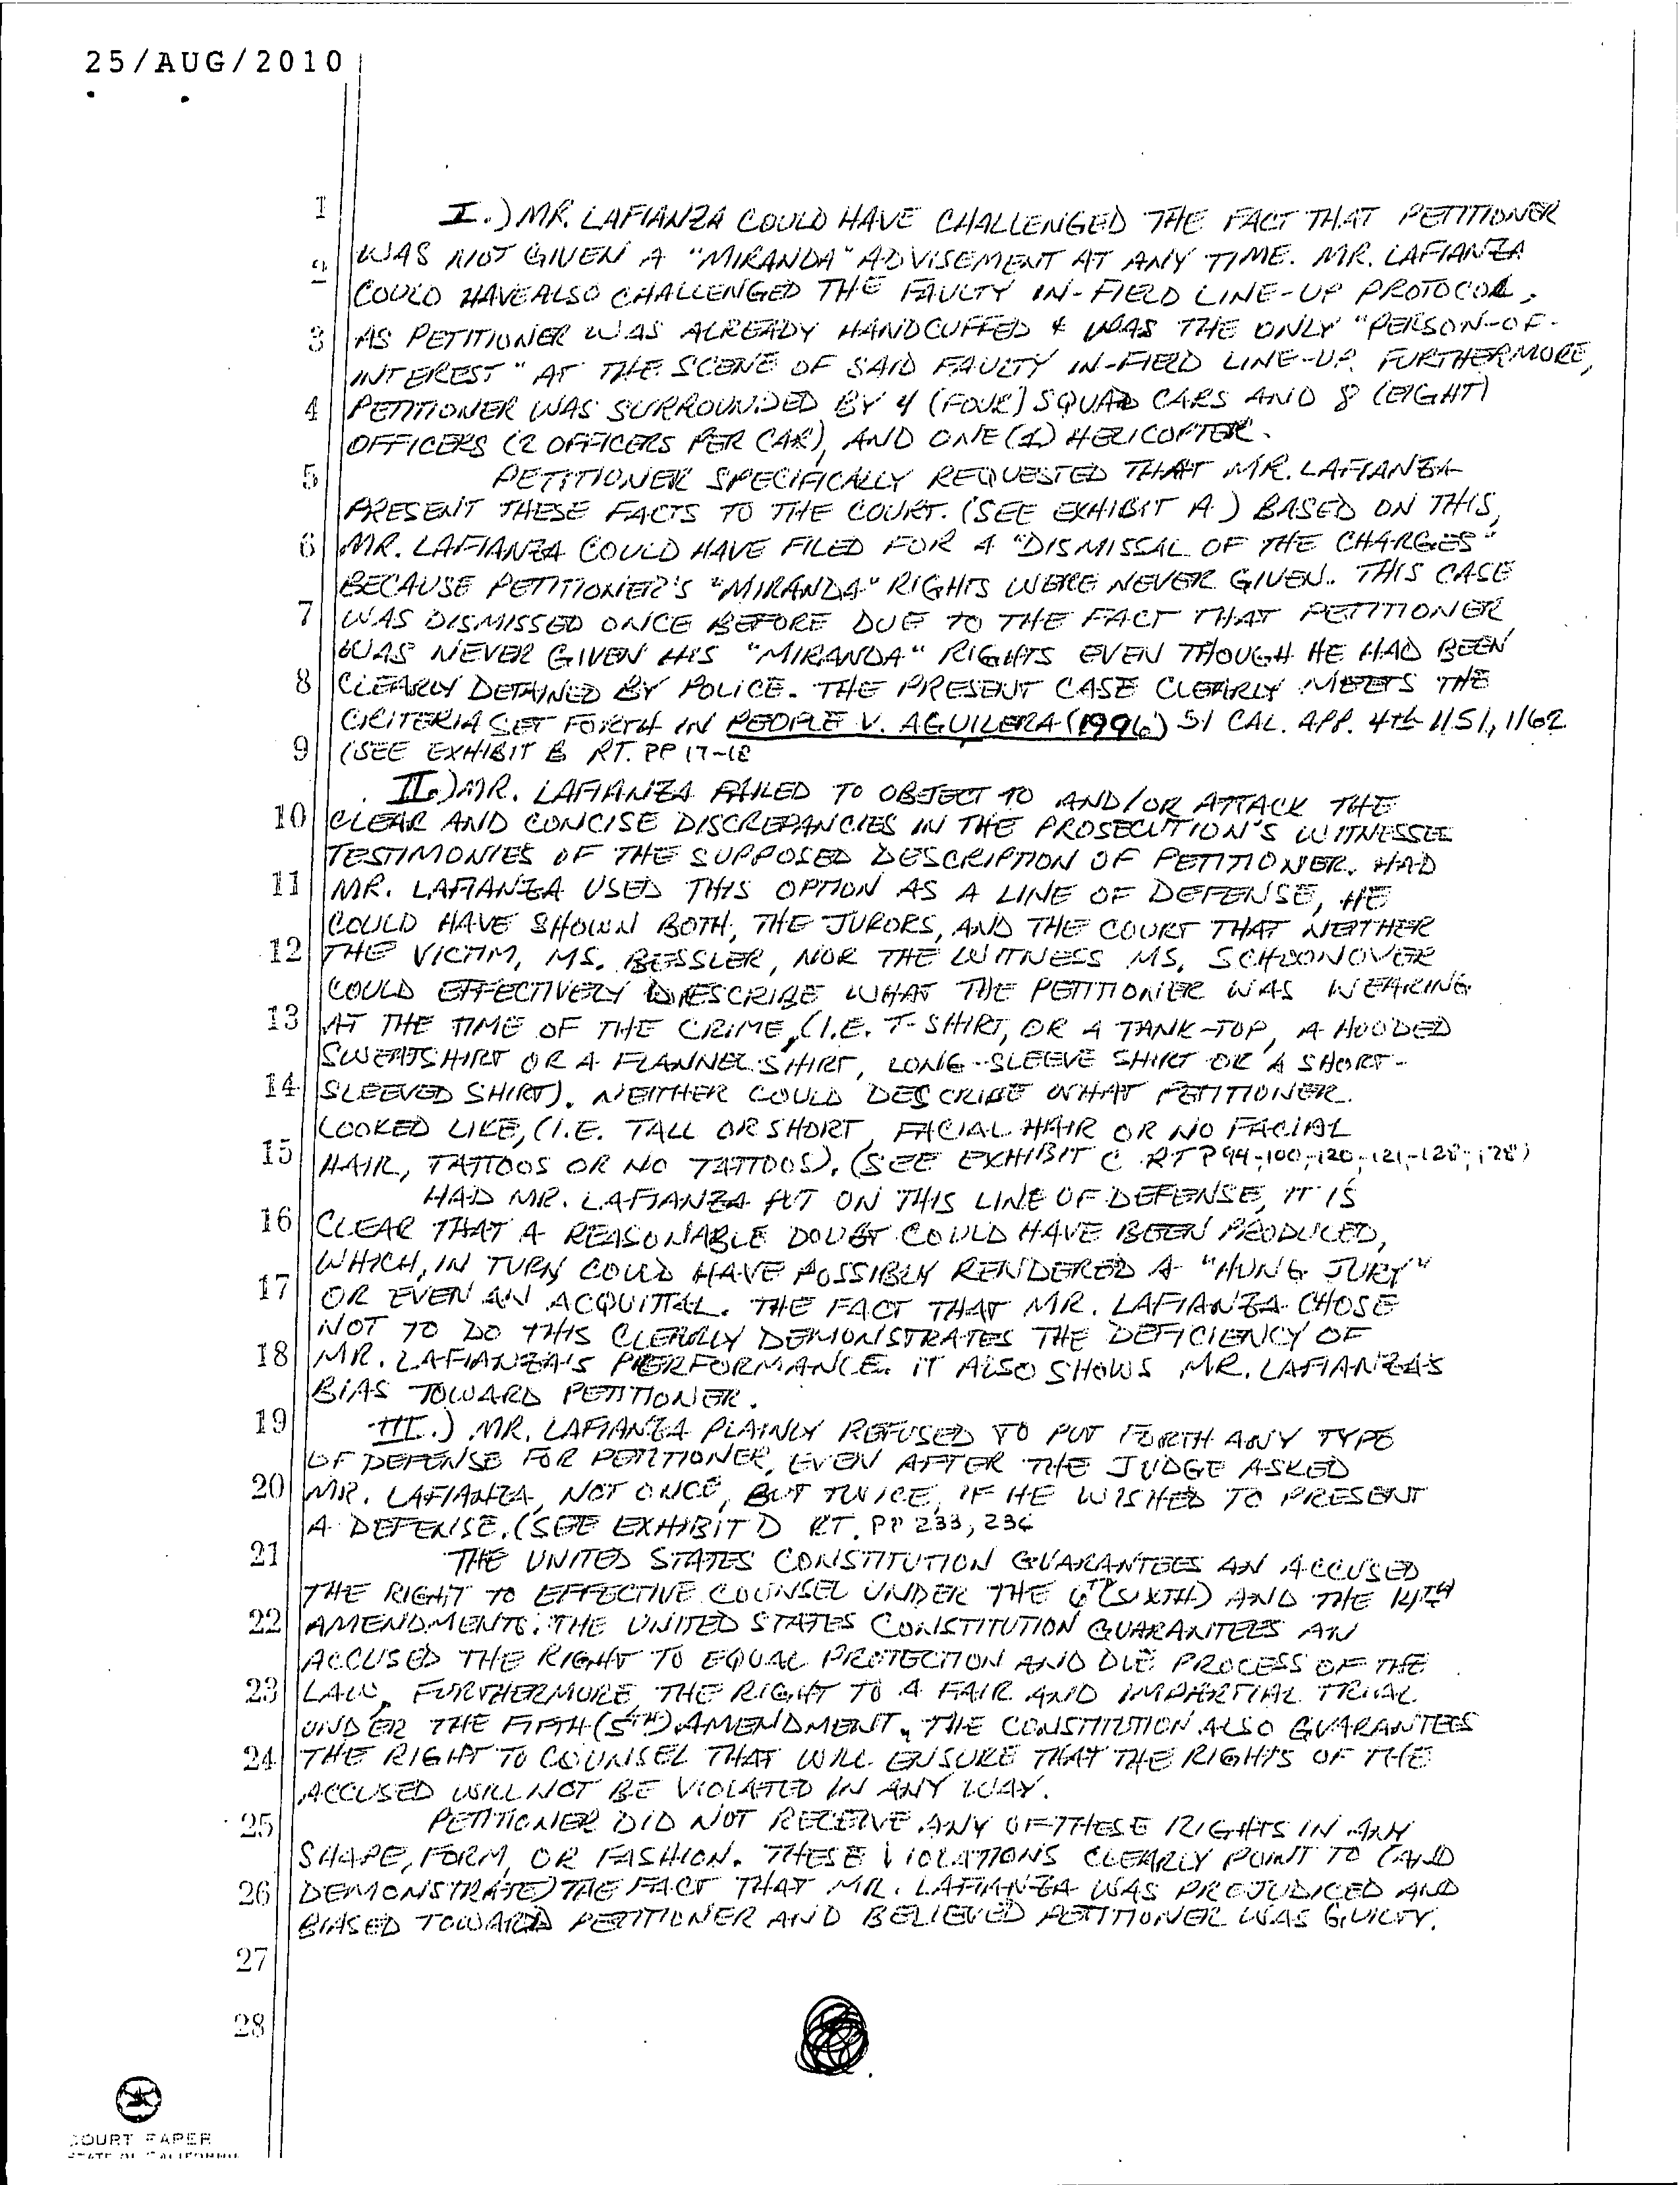 25/AUG/2010
1 I.) MR. LAFIANZA COULD HAVE CHALLENGED THE FACT THAT PETITIONER
WAS NOT GIVEN A "MIRANDA" ADVISEMENT AT ANY TIME. MR. LAFIANZA
2 COULD HAVE ALSO CHALLENGED THE FAULTY IN-FIELD LINE-UP PROTOCOL,
3 AS PETITIONER WAS ALREADY HANDCUFFED & WAS THE ONLY "PERSON-OF-
INTEREST" AT THE SCENE OF SAID FAULTY IN-FIELD LINE-UP. FURTHERMORE,
4 PETITIONER WAS SURROUNDED BY 4 (FOUR) SQUAD CARS AND 8 (EIGHT)
OFFICERS (2 OFFICERS PER CAR), AND ONE (1) HELICOPTER.
5 PETITIONER SPECIFICALLY REQUESTED THAT MR. LAFIANZA
PRESENT THESE FACTS TO THE COURT. (SEE EXHIBIT A.) BASED ON THIS,
6 MR. LAFIANZA COULD HAVE FILED FOR A "DISMISSAL OF THE CHARGES"
BECAUSE PETITIONER'S "MIRANDA" RIGHTS WERE NEVER GIVEN. THIS CASE
7 WAS DISMISSED ONCE BEFORE DUE TO THE FACT THAT PETITIONER
WAS NEVER GIVEN HIS "MIRANDA" RIGHTS EVEN THOUGH HE HAD BEEN
8 CLEARLY DETAINED BY POLICE. THE PRESENT CASE CLEARLY MEETS THE
CRITERIA SET FORTH IN PEOPLE V. AGUILERA (1996) 51 CAL. APP. 4th 1151, 1162
9 (SEE EXHIBIT B RT. PP 17-18
II.) MR. LAFIANZA FAILED TO OBJECT TO AND/OR ATTACK THE
10 CLEAR AND CONCISE DISCREPANCIES IN THE PROSECUTION'S WITNESSES
TESTIMONIES OF THE SUPPOSED DESCRIPTION OF PETITIONER. HAD
11 MR. LAFIANZA USED THIS OPTION AS A LINE OF DEFENSE, HE
COULD HAVE SHOWN BOTH, THE JURORS, AND THE COURT THAT NEITHER
12 THE VICTIM, MS. BESSLER, NOR THE WITNESS MS. SCHOONOVER
COULD EFFECTIVELY DESCRIBE WHAT THE PETITIONER WAS WEARING
13 AT THE TIME OF THE CRIME, (I.E. T-SHIRT, OR A TANK-TOP, A HOODED
SWEATSHIRT OR A FLANNEL SHIRT, LONG-SLEEVE SHIRT OR A SHORT-
14 SLEEVED SHIRT). NEITHER COULD DESCRIBE WHAT PETITIONER
LOOKED LIKE, (I.E. TALL OR SHORT, FACIAL HAIR OR NO FACIAL
15 HAIR, TATTOOS OR NO TATTOOS). (SEE EXHIBIT C RT P 94-100, -120, -121, -128,
HAD MR. LAFIANZA PUT ON THIS LINE OF DEFENSE, IT IS
16 CLEAR THAT A REASONABLE DOUBT COULD HAVE BEEN PRODUCED,
WHICH, IN TURN COULD HAVE POSSIBLY RENDERED A "HUNG JURY"
17 OR EVEN AN ACQUITTAL. THE FACT THAT MR. LAFIANZA CHOSE
NOT TO DO THIS CLEARLY DEMONSTRATES THE DEFICIENCY OF
18 MR. LAFIANZA'S PERFORMANCE. IT ALSO SHOWS MR. LAFIANZA'S
BIAS TOWARD PETITIONER.
19 III.) MR. LAFIANZA PLAINLY REFUSED TO PUT FORTH ANY TYPE
OF DEFENSE FOR PETITIONER, EVEN AFTER THE JUDGE ASKED
20 MR. LAFIANZA, NOT ONCE, BUT TWICE, IF HE WISHED TO PRESENT
A DEFENSE. (SEE EXHIBIT D RT. PP 233, 236
21 THE UNITED STATES CONSTITUTION GUARANTEES AN ACCUSED
THE RIGHT TO EFFECTIVE COUNSEL UNDER THE 6TH (SIXTH) AND THE 14TH
22 AMENDMENTS. THE UNITED STATES CONSTITUTION GUARANTEES AN
ACCUSED THE RIGHT TO EQUAL PROTECTION AND DUE PROCESS OF THE
23 LAW, FURTHERMORE, THE RIGHT TO A FAIR AND IMPARTIAL TRIAL
UNDER THE FIFTH (5TH) AMENDMENT. THE CONSTITUTION ALSO GUARANTEES
24 THE RIGHT TO COUNSEL THAT WILL ENSURE THAT THE RIGHTS OF THE
ACCUSED WILL NOT BE VIOLATED IN ANY WAY.
25 PETITIONER DID NOT RECEIVE ANY OF THESE RIGHTS IN ANY
SHAPE, FORM, OR FASHION. THESE VIOLATIONS CLEARLY POINT TO (AND
26 DEMONSTRATE) THE FACT THAT MR. LAFIANZA WAS PREJUDICED AND
BIASED TOWARD PETITIONER AND BELIEVED PETITIONER WAS GUILTY.
27
28
COURT PAPER
STATE OF CALIFORNIA